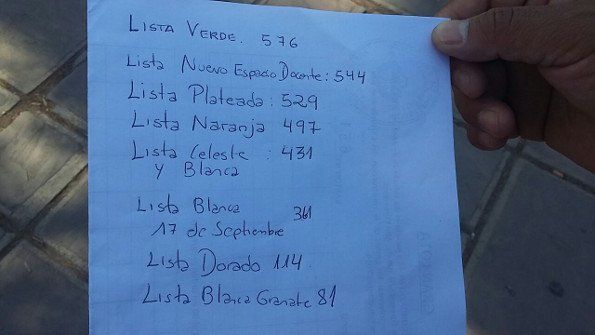 LISTA VERDE. 576
Lista Nuevo Espacio Docente: 544
Lista Plateada: 529
Lista Naranja 497
Lista Celeste : 431
y Blanca
Lista Blanca 361
17 de Septiembre
Lista Dorado 114.
Lista Blanca Granate 81